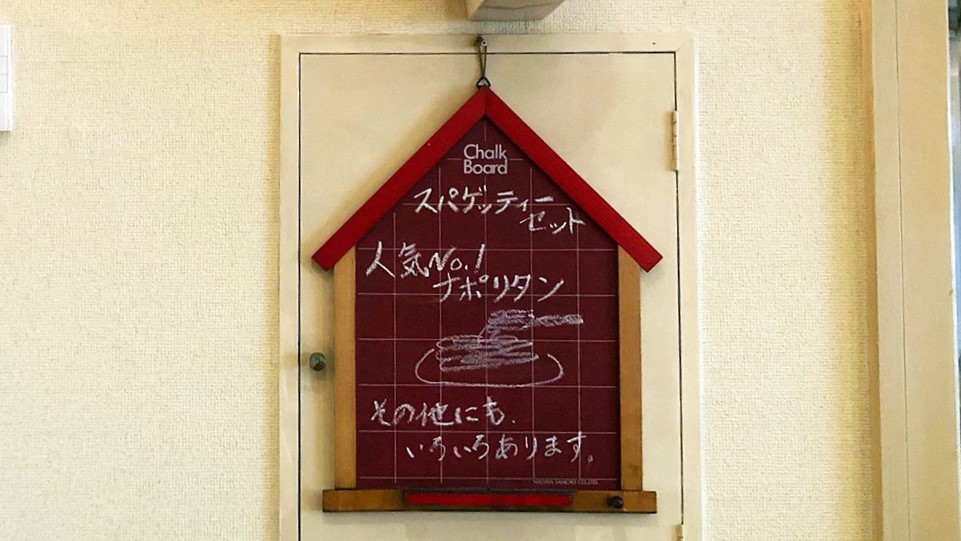 Chalk
Board
スパゲッティー
セット
人気No.1
ナポリタン
その他にも、
いろいろあります。